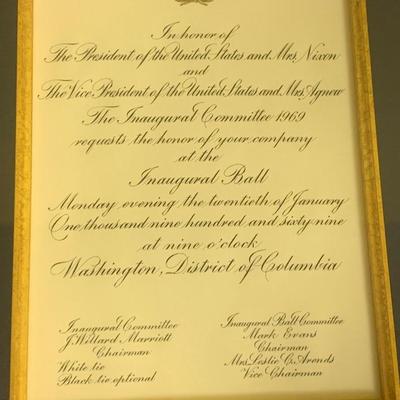 In honor of
The President of the United States and Mrs. Nixon
and
The Vice President of the United States and Mrs. Agnew
The Inaugural Committee 1969
requests the honor of your company
at the
Inaugural Ball
Monday evening the twentieth of January
One thousand nine hundred and sixty nine
at nine o'clock
Washington, District of Columbia
Inaugural Committee
J. Willard Marriott
Chairman
White tie
Black tie optional
Inaugural Ball Committee
Mark Evans
Chairman
Mrs. Leslie C. Arends
Vice Chairman